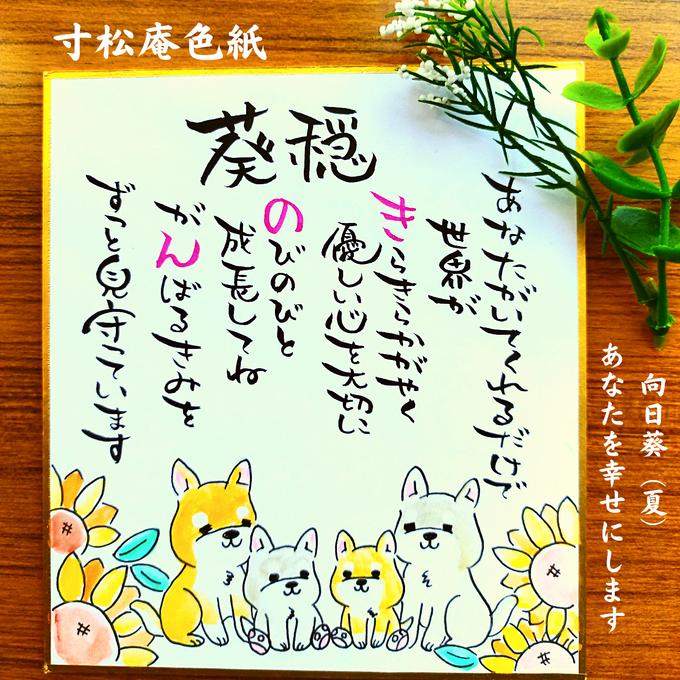 寸松庵色紙
葵穏
あなたがいてくれるだけで
世界が
きらきらかがやく
優しい心を大切に
のびのびと
成長してね
がんばるきみを
ずっと見守っています
向日葵（夏）
あなたを幸せにします